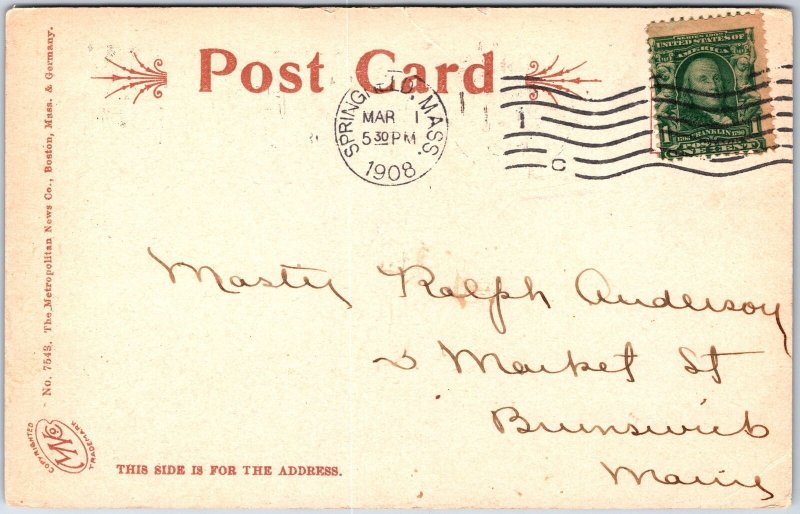 No. 7543. The Metropolitan News Co., Boston, Mass. & Germany.
Post Card
SPRINGFIELD, MASS.
MAR 1
5 30 PM
1908
C
SERIES 1902
UNITED STATES OF
AMERICA
1706 FRANKLIN 1790
1 1
POSTAGE
ONE CENT
Master Ralph Anderson
Market St
Brunswick
Maine
COPYRIGHTED
MN Co.
TRADEMARK
THIS SIDE IS FOR THE ADDRESS.